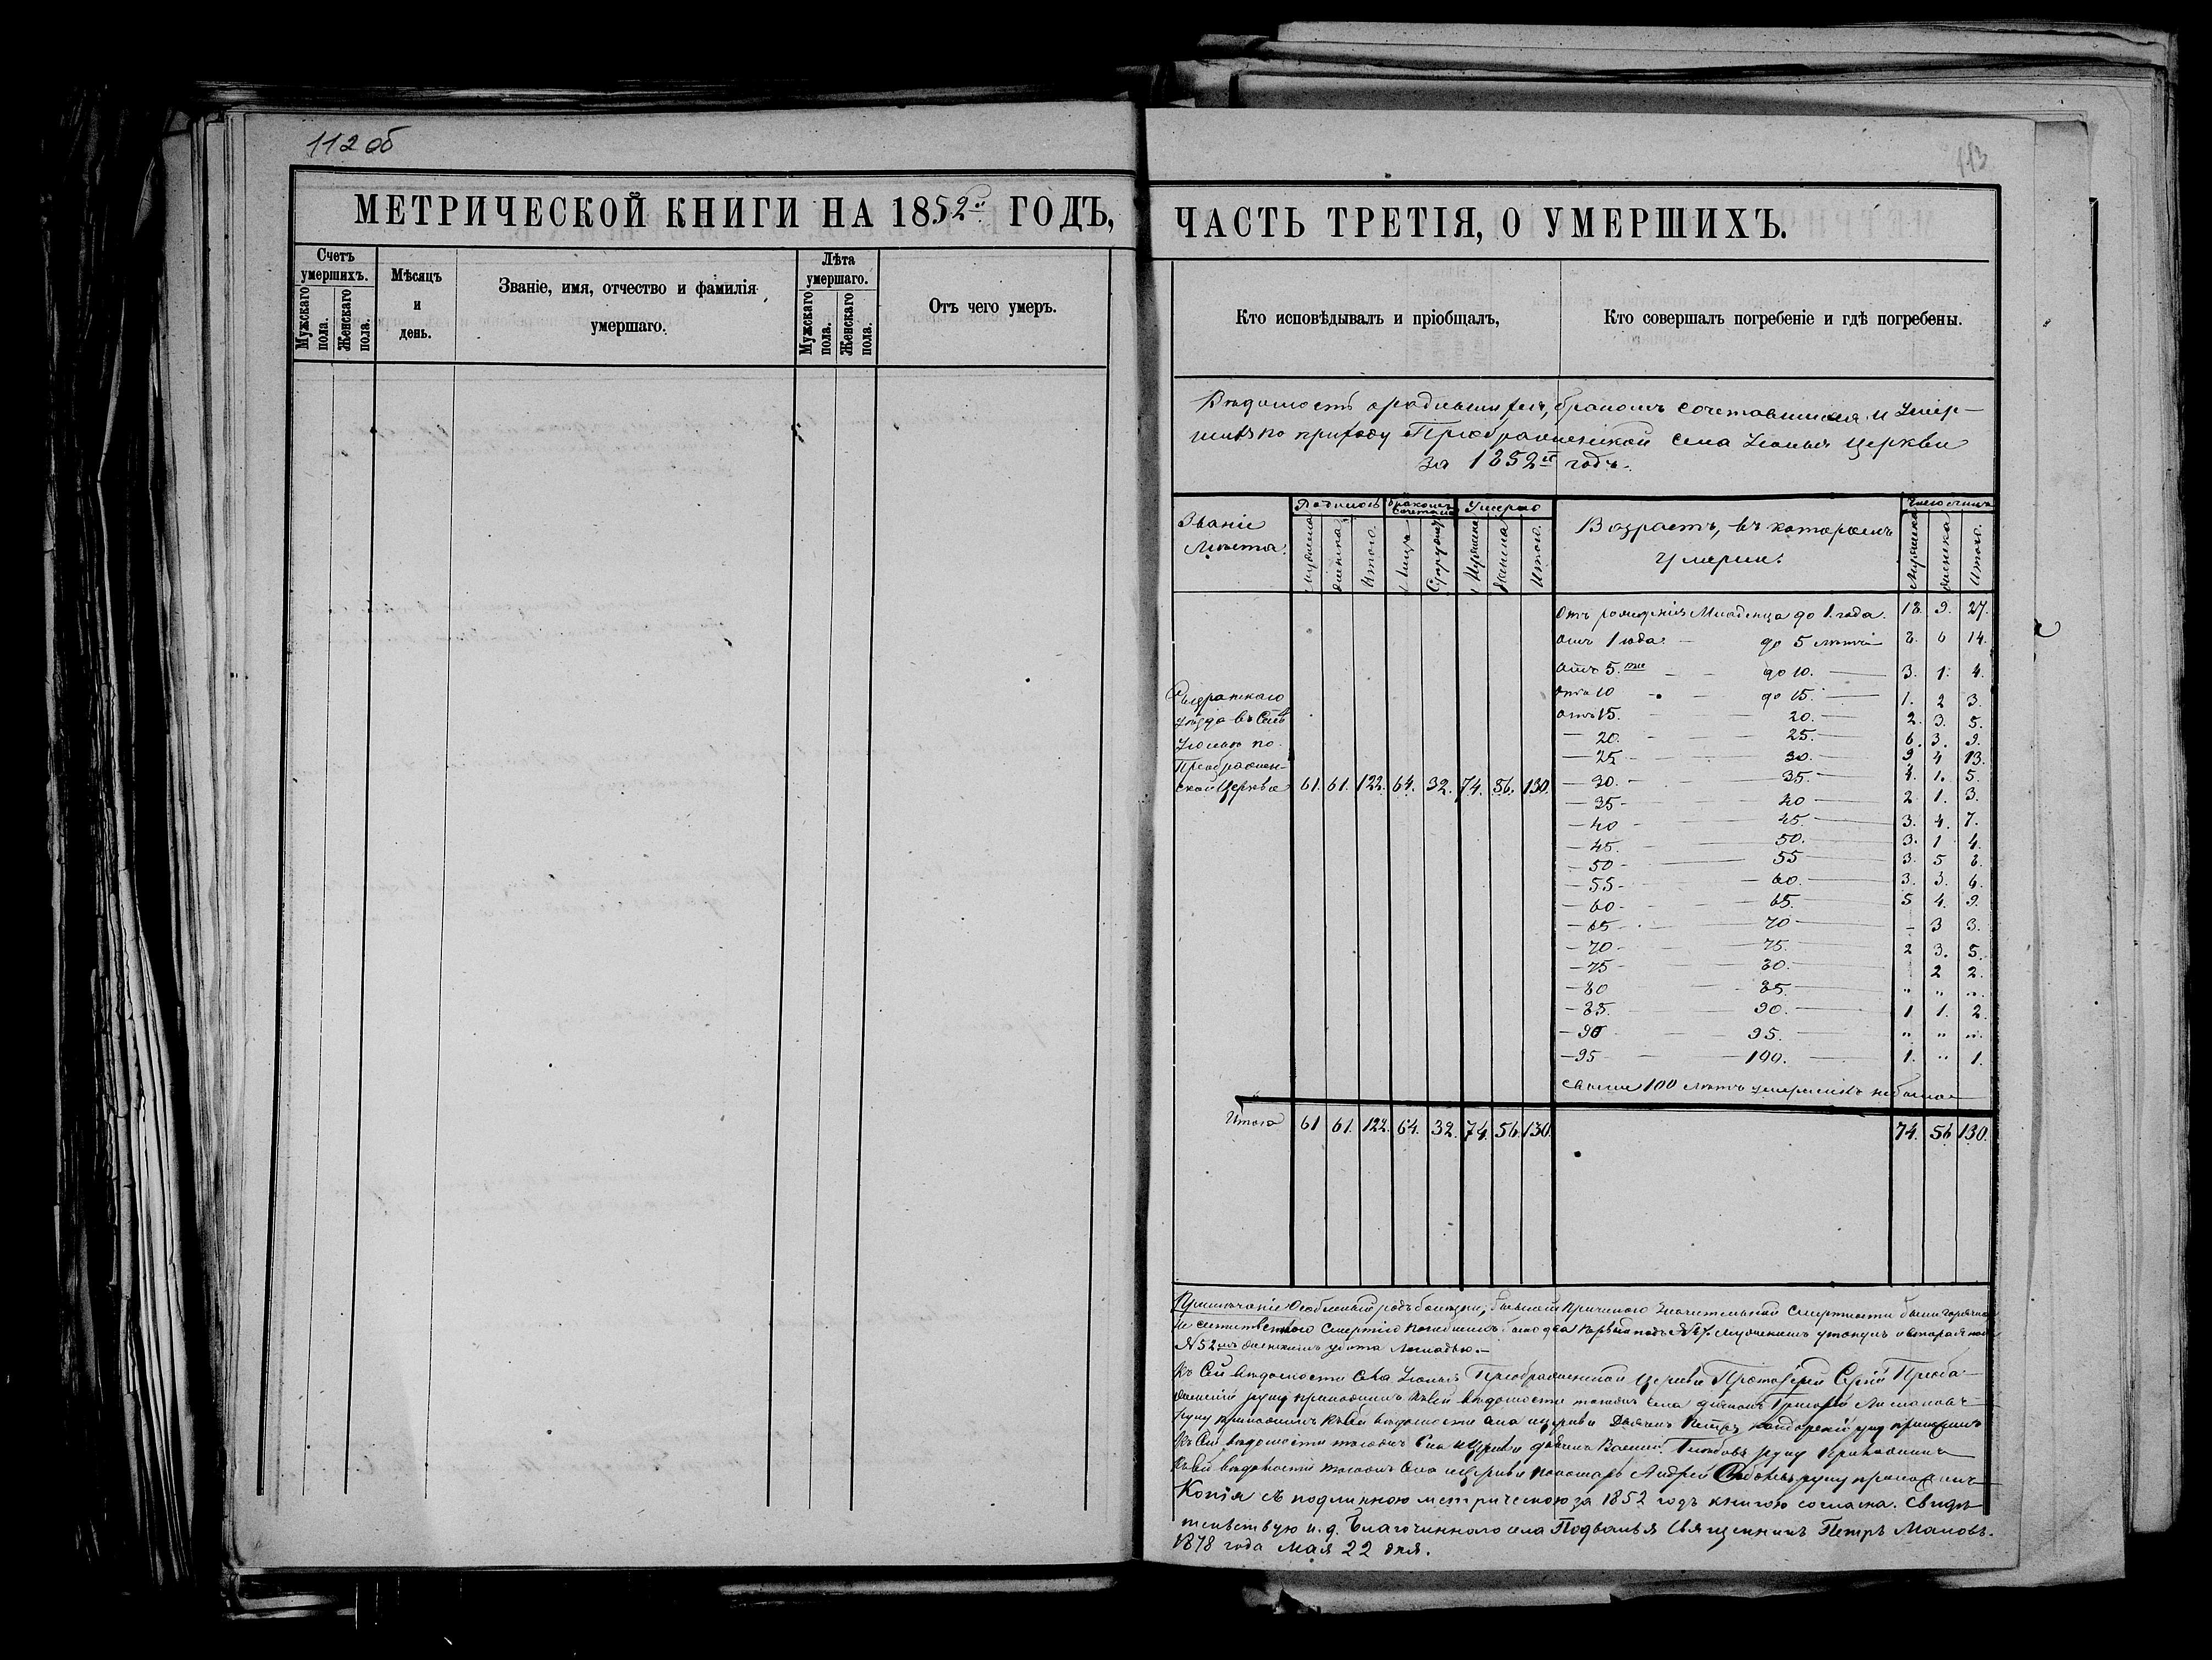 112 об
МЕТРИЧЕСКОЙ КНИГИ НА 1852й ГОДЪ,
Счетъ умершихъ.
Мужскаго пола.
Женскаго пола.
Мѣсяцъ и день.
Званіе, имя, отчество и фамилія умершаго.
Лѣта умершаго.
Мужскаго пола.
Женскаго пола.
Отъ чего умеръ.
113
ЧАСТЬ ТРЕТІЯ, О УМЕРШИХЪ.
Кто исповѣдывалъ и пріобщалъ,
Кто совершалъ погребеніе и гдѣ погребены.
Вѣдомость о родившихся, бракомъ сочетавшихся и умер-
шихъ по приходу Преображенской села Усолья церкви
за 1852й годъ.
Званіе мѣста.
Родилось
Бракомъ сочетано
Умерло
Возрастъ, въ которомъ умерли.
Число лицъ
Мужеска женска Итого. Лицъ Супружеў Мужеска женска Итого.
Мужеска женска Итого.
Отъ рожденія Младенца до 1. года. 18. 9. 27.
отъ 1 года. до 5 лѣтъ 8. 6 14.
отъ 5.ти до 10. 3. 1. 4.
отъ 10 до 15. 1. 2 3.
отъ 15. 20. 2. 3. 5.
20. 25. 6. 3. 9.
25. 30. 9 4 13.
30. 35. 4. 1. 5.
35 40 2 1. 3.
40 45. 3. 4. 7.
45. 50. 3. 1 4.
50 55 3. 5 8.
55. 60. 3. 3. 6.
60. 65. 5 4. 9.
65 70 – 3 3.
70 75. 2 3. 5.
75 80. 2 2.
80 85. " " "
85. 90. 1 1. 2.
90 95. " " "
95 100. 1. " 1.
свыше 100 лѣтъ умершихъ не было
Сызранскаго
уѣзда въ селѣ
Усольѣ по
Преображен-
ской Церкви 61. 61. 122. 64. 32. 74. 56. 130.
Итого 61 61. 122. 64. 32. 74. 56. 130. 74. 56 130.
Примѣчаніе Особенный родъ болѣзни, бывшей причиною значительной смертности были горячки
Не естественною смертію погибшихъ было два первый подъ № 7. мужескимъ утонулъ и вторая подъ
№ 52мъ женскимъ убита лошадью.
Къ сей вѣдомости села Усолья Преображенской церкви Протоіерей Сергій Преобра-
женскій руку приложилъ къ сей вѣдомости тогожъ села діаконъ Григорій
руку приложилъ къ сей вѣдомости села церкви Дьячекъ Петръ руку приложилъ
Къ сей вѣдомости тогожъ села церкви дьячекъ Василій руку приложилъ
Къ сей вѣдомости тогожъ села церкви пономарь Андрей руку приложилъ
Копія съ подлинною метрическою за 1852 годъ книгою согласна. Свидѣ
тельствую и. д. Благочиннаго села Подвалья Священникъ Петръ Маловъ.
1878 года мая 22 дня.